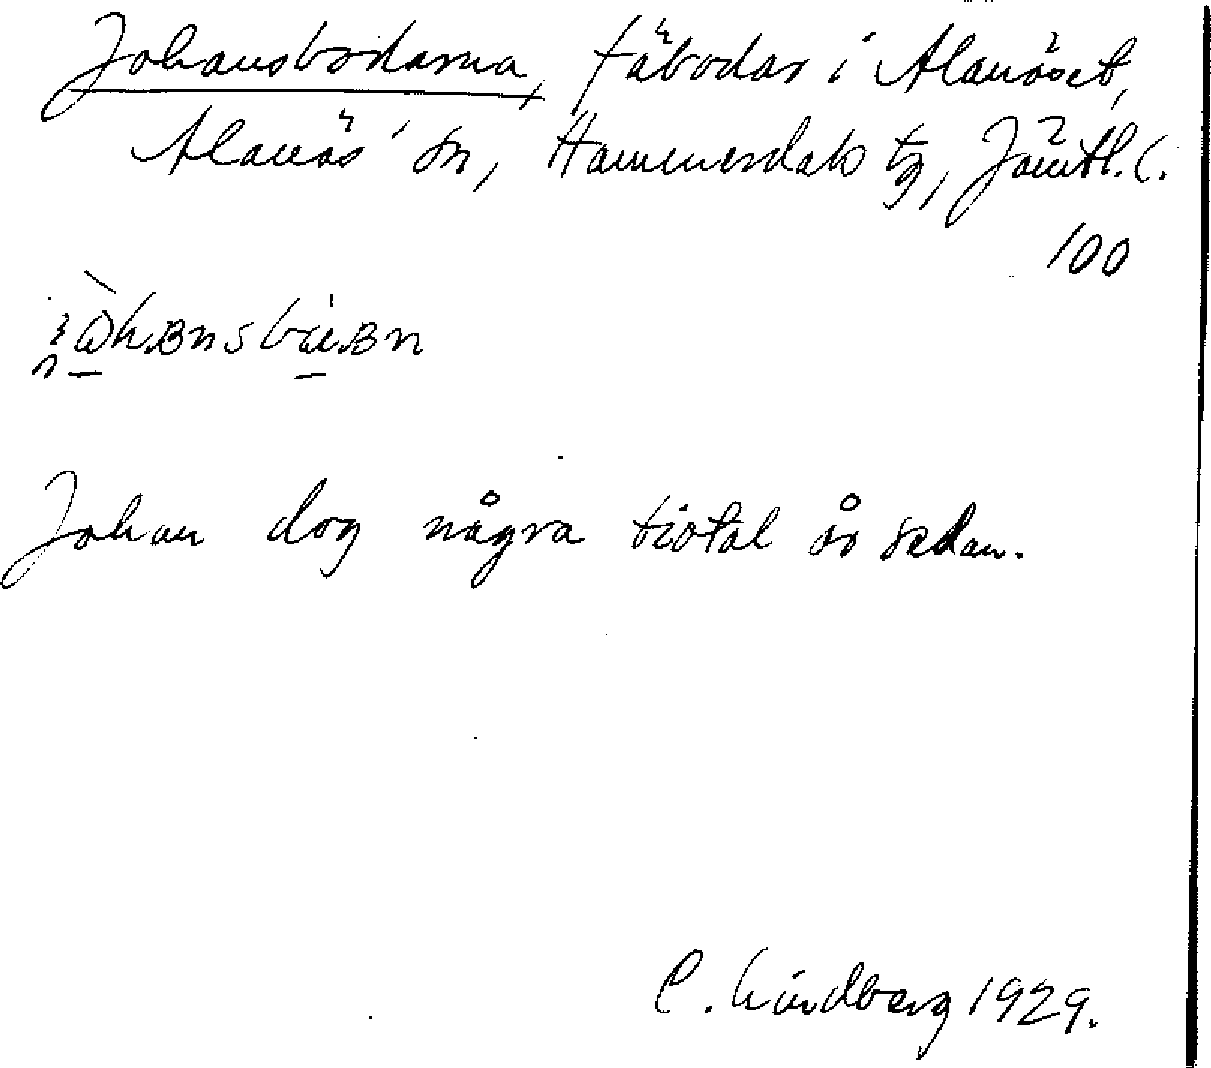 Johansbodarna, fäbodar i Alanäset,
Alanäs' sn, Hammerdals tg, Jämtl. l.
100
Johan dog några tiotal år sedan.
C. Lindberg 1929.